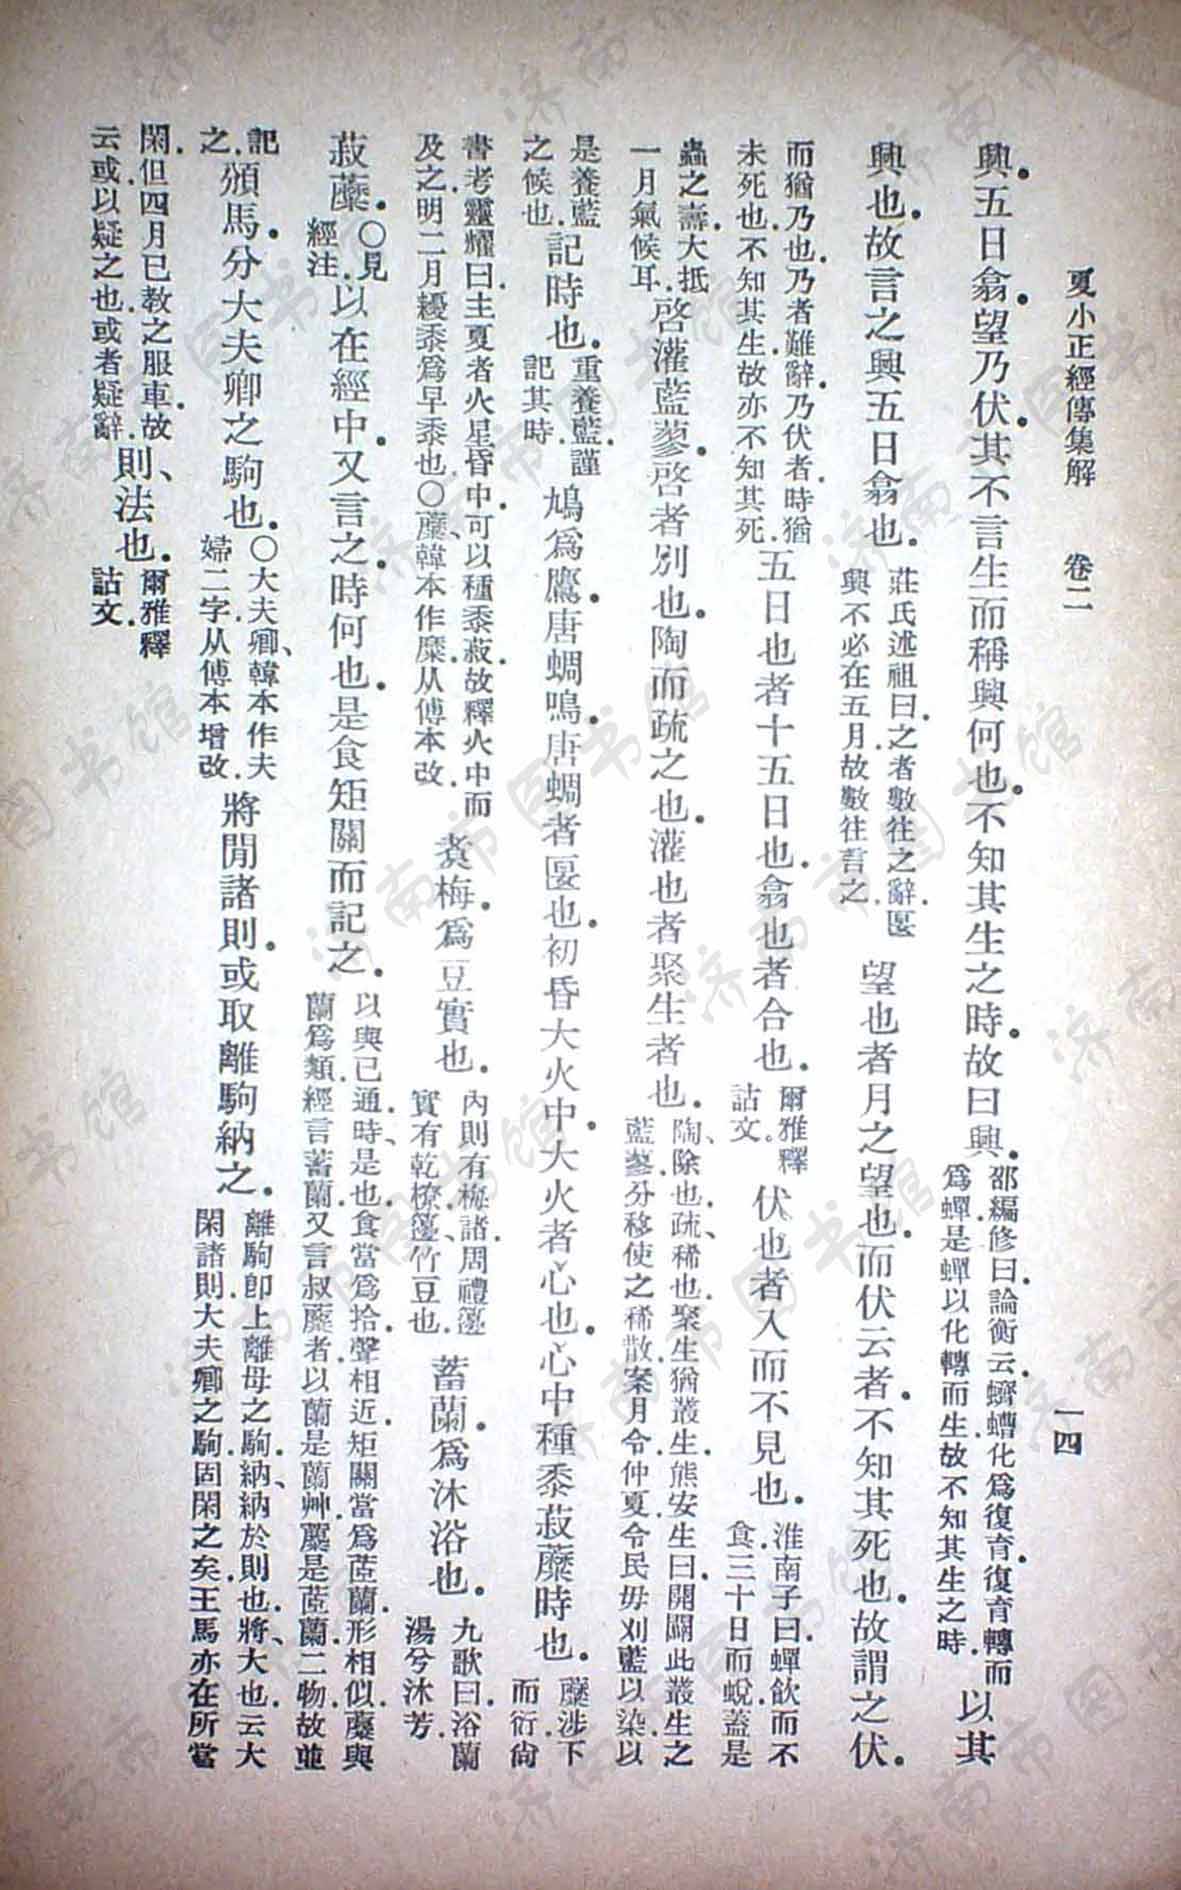 夏小正經傳集解 卷二 一四
興。五日翕。望乃伏。其不言生而稱興何也。不知其生之時。故曰興。邵編修曰。論衡云。蠐螬化爲復育。復育轉而爲蟬。是蟬以化轉而生。故不知其生之時。以其
興也。故言之興。五日翕也。莊氏述祖曰。之者數往之辭。匽興不必在五月。故數往言之。望也者月之望也。而伏云者。不知其死也。故謂之伏。
而猶乃也。乃者難辭。乃伏者。時猶未死也。不知其生。故亦不知其死。五日也者十五日也。翕也者合也。爾雅釋詁文。伏也者入而不見也。淮南子曰。蟬飲而不食。三十日而蛻。蓋是
蟲之壽。大抵一月氣候耳。啓灌藍蓼。啓者別也。陶而疏之也。灌也者聚生者也。陶、除也。疏、稀也。聚生猶叢生。熊安生曰。開闢此叢生之藍蓼。分移使之稀散。案月令。仲夏令民毋刈藍以染。以
是養藍之候也。記時也。重養藍。謹記其時。鳩爲鷹。唐蜩鳴。唐蜩者匽也。初昏大火中。大火者心也。心中種黍菽蘪時也。蘪涉下而衍。尙
書考靈耀曰。主夏者火星。昏中。可以種黍菽。故釋火中而及之。明二月糉黍爲早黍也。○蘪、韓本作糜。从傅本改。煑梅。爲豆實也。內則有梅諸。周禮籩實有乾橑。籩、竹豆也。蓄蘭。爲沐浴也。九歌曰。浴蘭湯兮沐芳。
菽蘪。○見經注。以在經中。又言之時何也。是食矩關而記之。以與已通。時、是也。食當爲拾。聲相近。矩關當爲茝蘭。形相似。蘪與蘭爲類。經言蓄蘭。又言叔蘪者。以蘭是蘭艸。蘪是茝蘭。二物故並
記之。頒馬。分大夫卿之駒也。○大夫卿、韓本作夫婦二字。从傅本增改。將閒諸則。或取離駒納之。離駒卽上離母之駒。納、納於則也。將、大也。云大閑諸則。大夫卿之駒。固閑之矣。王馬亦在所當
閑。但四月已敎之服車。故云或以疑之也。或者疑辭。則、法也。爾雅釋詁文。